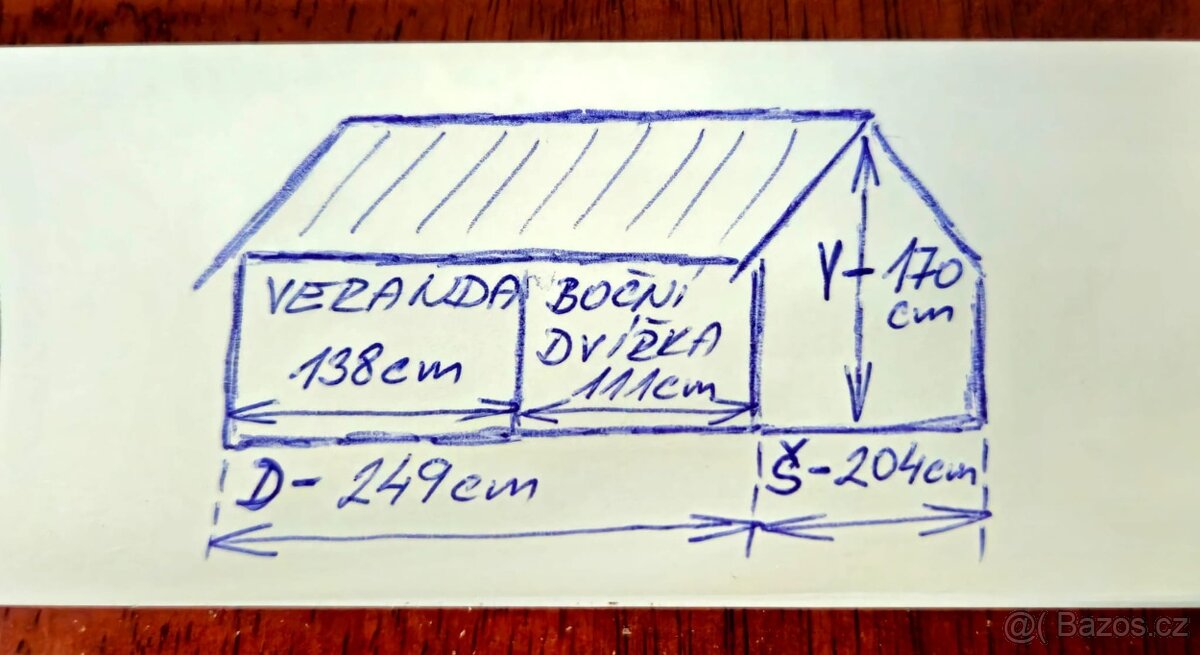 VERANDA
138cm
BOČNÍ
DVÍŘKA
111cm
V-170
cm
D- 249cm
Š-204cm
@( Bazos.cz